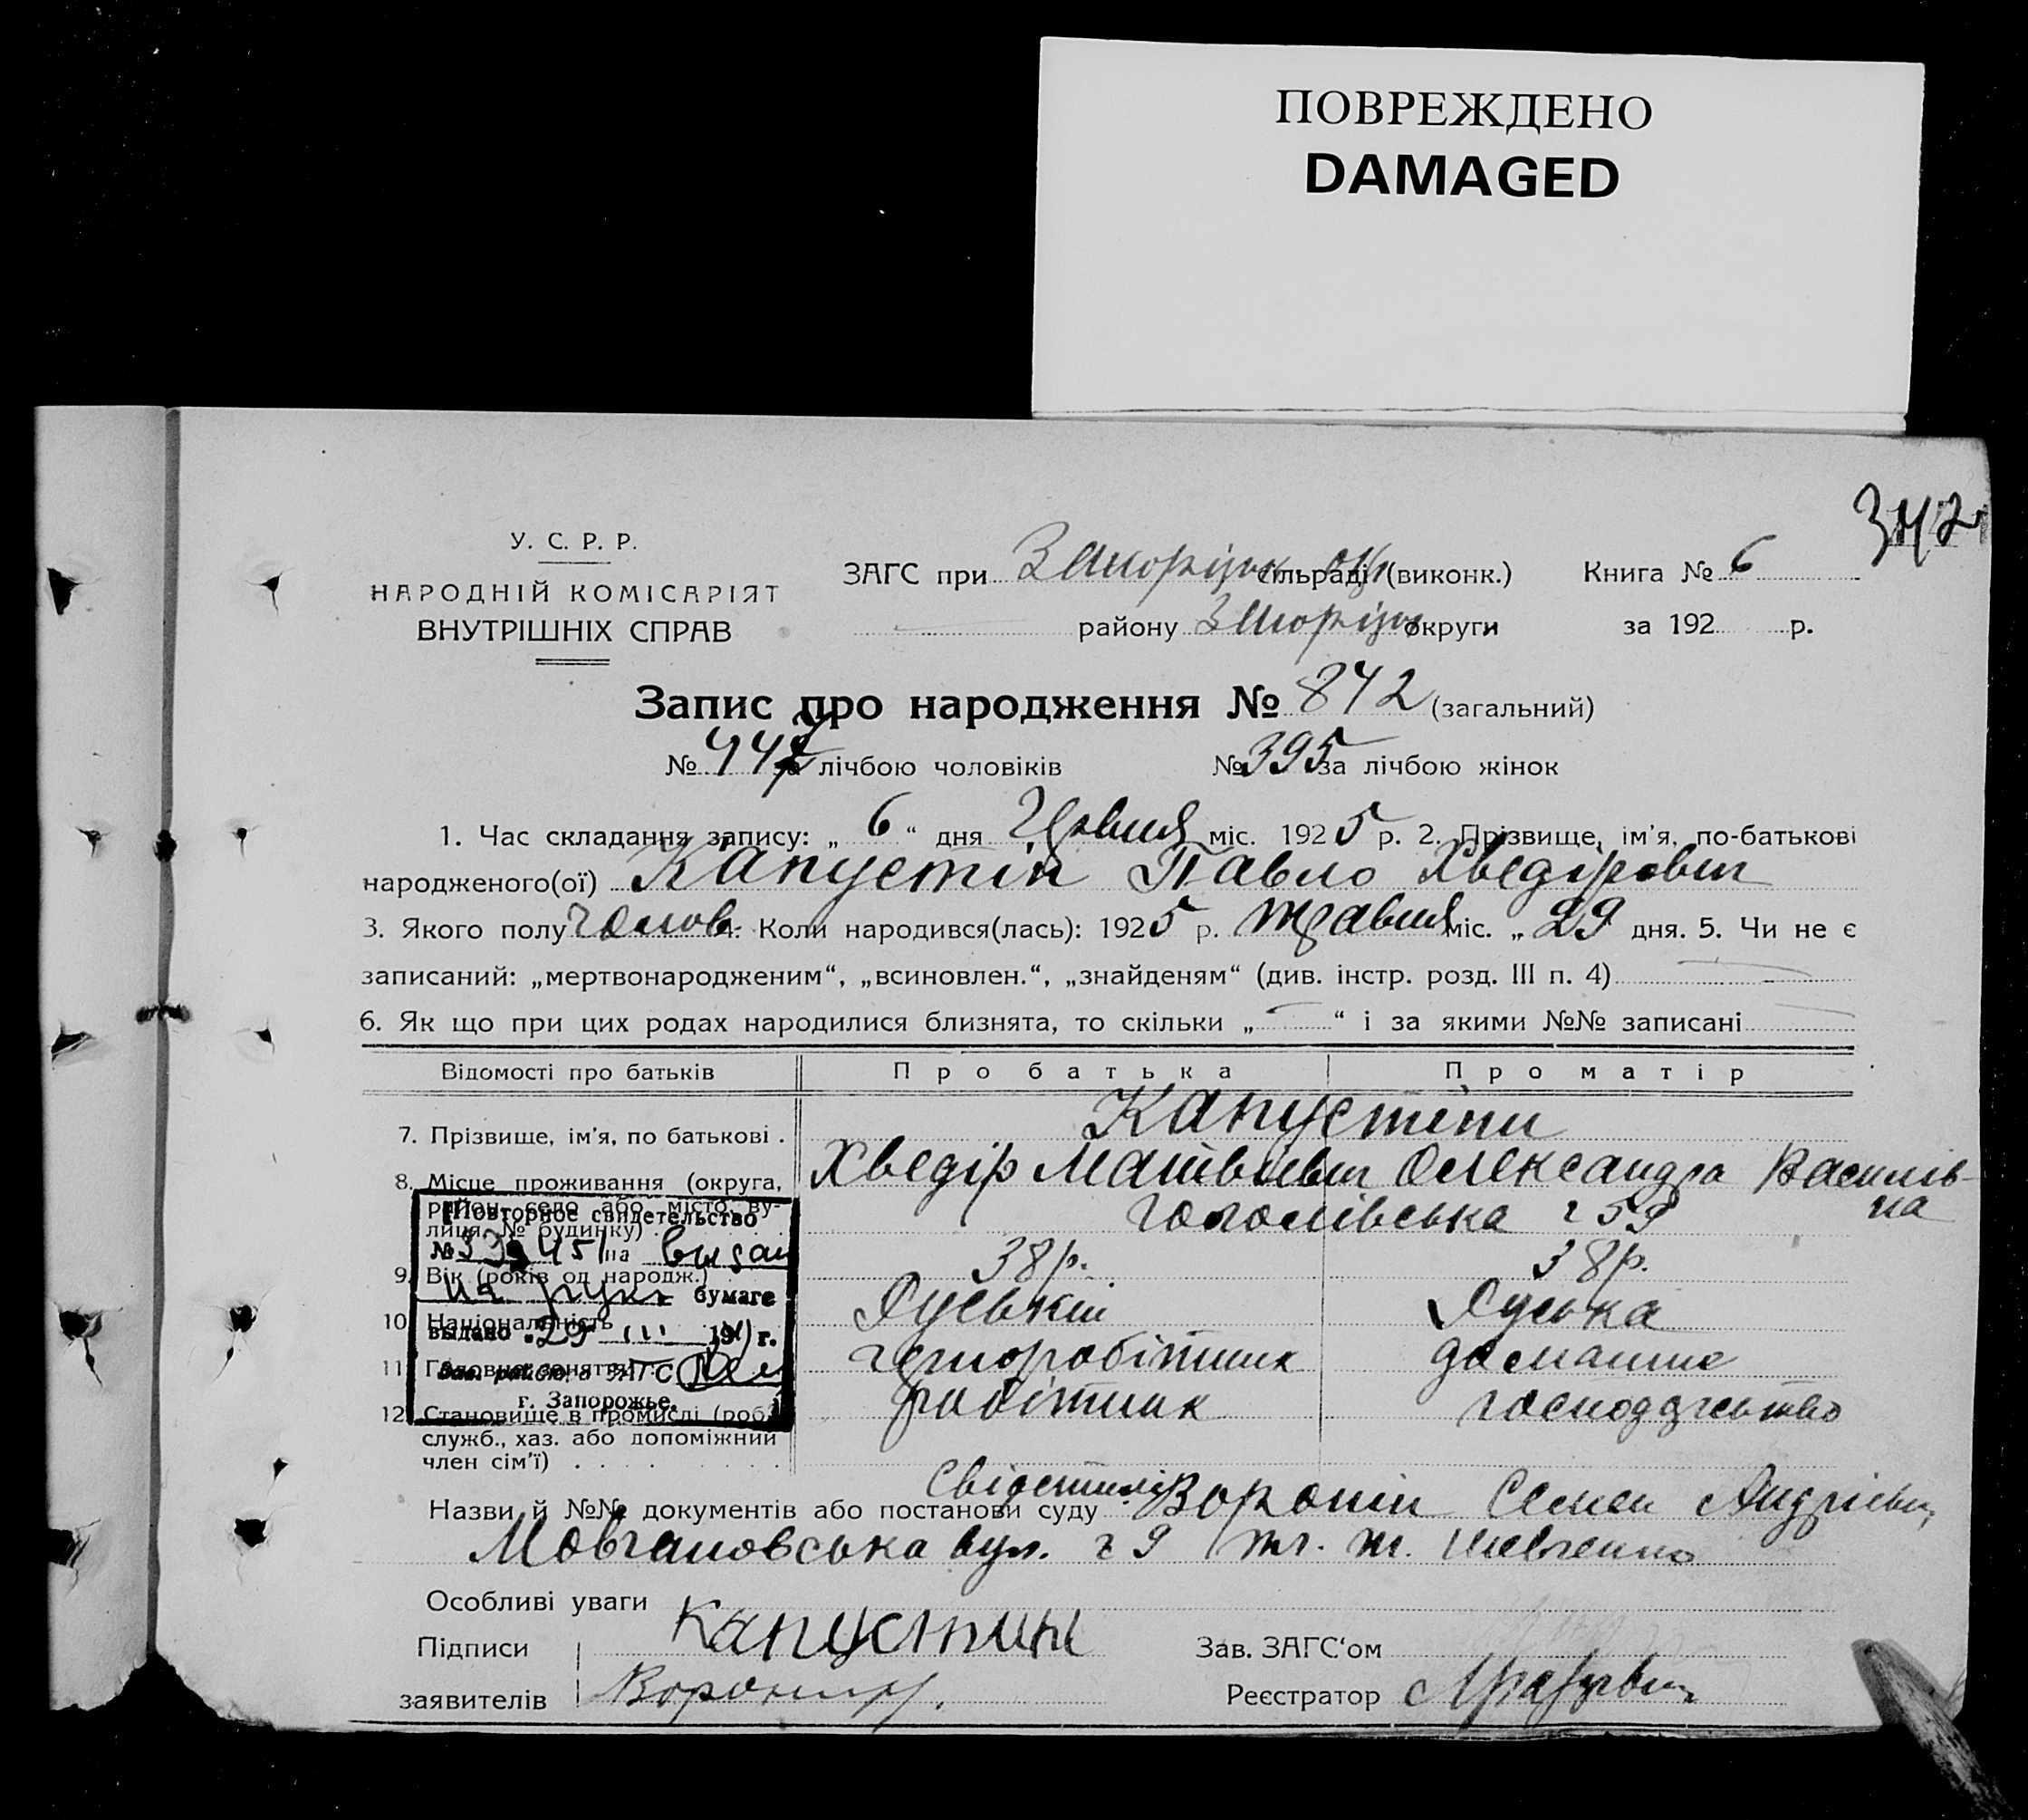 ПОВРЕЖДЕНО
DAMAGED
У. С. Р. Р.
НАРОДНІЙ КОМІСАРІЯТ
ВНУТРІШНІХ СПРАВ
ЗАГС при Запорізьк. сільраді (виконк.) Книга № 6
району Запорізьк округи за 192 р.
Запис про народження № 842 (загальний)
№ 447 за лічбою чоловіків № 395 за лічбою жінок
1. Час складання запису: „ 6 “ дня Червня міс. 1925 р. 2. Прізвище, ім’я, по-батькові
народженого(ої) Капустін Павло Хведірович
3. Якого полу чолов. 4. Коли народився(лась): 1925 р. травня міс. „ 29 дня. 5. Чи не є
записаний: „мертвонародженим“, „всиновлен.“, „знайденям“ (див. інстр. розд. III п. 4)
6. Як що при цих родах народилися близнята, то скільки „ “ і за якими №№ записані
Відомості про батьків Про батька Про матір
Капустіни
7. Прізвище, ім’я, по батькові . Хведір Матвієвич Олександра Василів-
на
8. Місце проживання (округа,
район, село або місто, ву-
лиця, № будинку) Гоголівська ч 59
9. Вік (років од народж.) 38р. 38р.
10. Національність Руський Руська
11. Головне заняття чорноробітник домашнє
12. Становище в промислі (роб., робітник господарство
служб., хаз. або допоміжний
член сім’ї)
Повторное свидетельство
№ на
бумаге
выдано 29 III г.
ЗАГС
г. Запорожье.
Свідетилі
Назви й №№ документів або постанови суду Воронін Семен Андрієвич
Мовчановська вул. ч 9 Шевченко
Особливі уваги
Підписи Капустин
заявителів Воронин
Зав. ЗАГС‘ом
Реєстратор